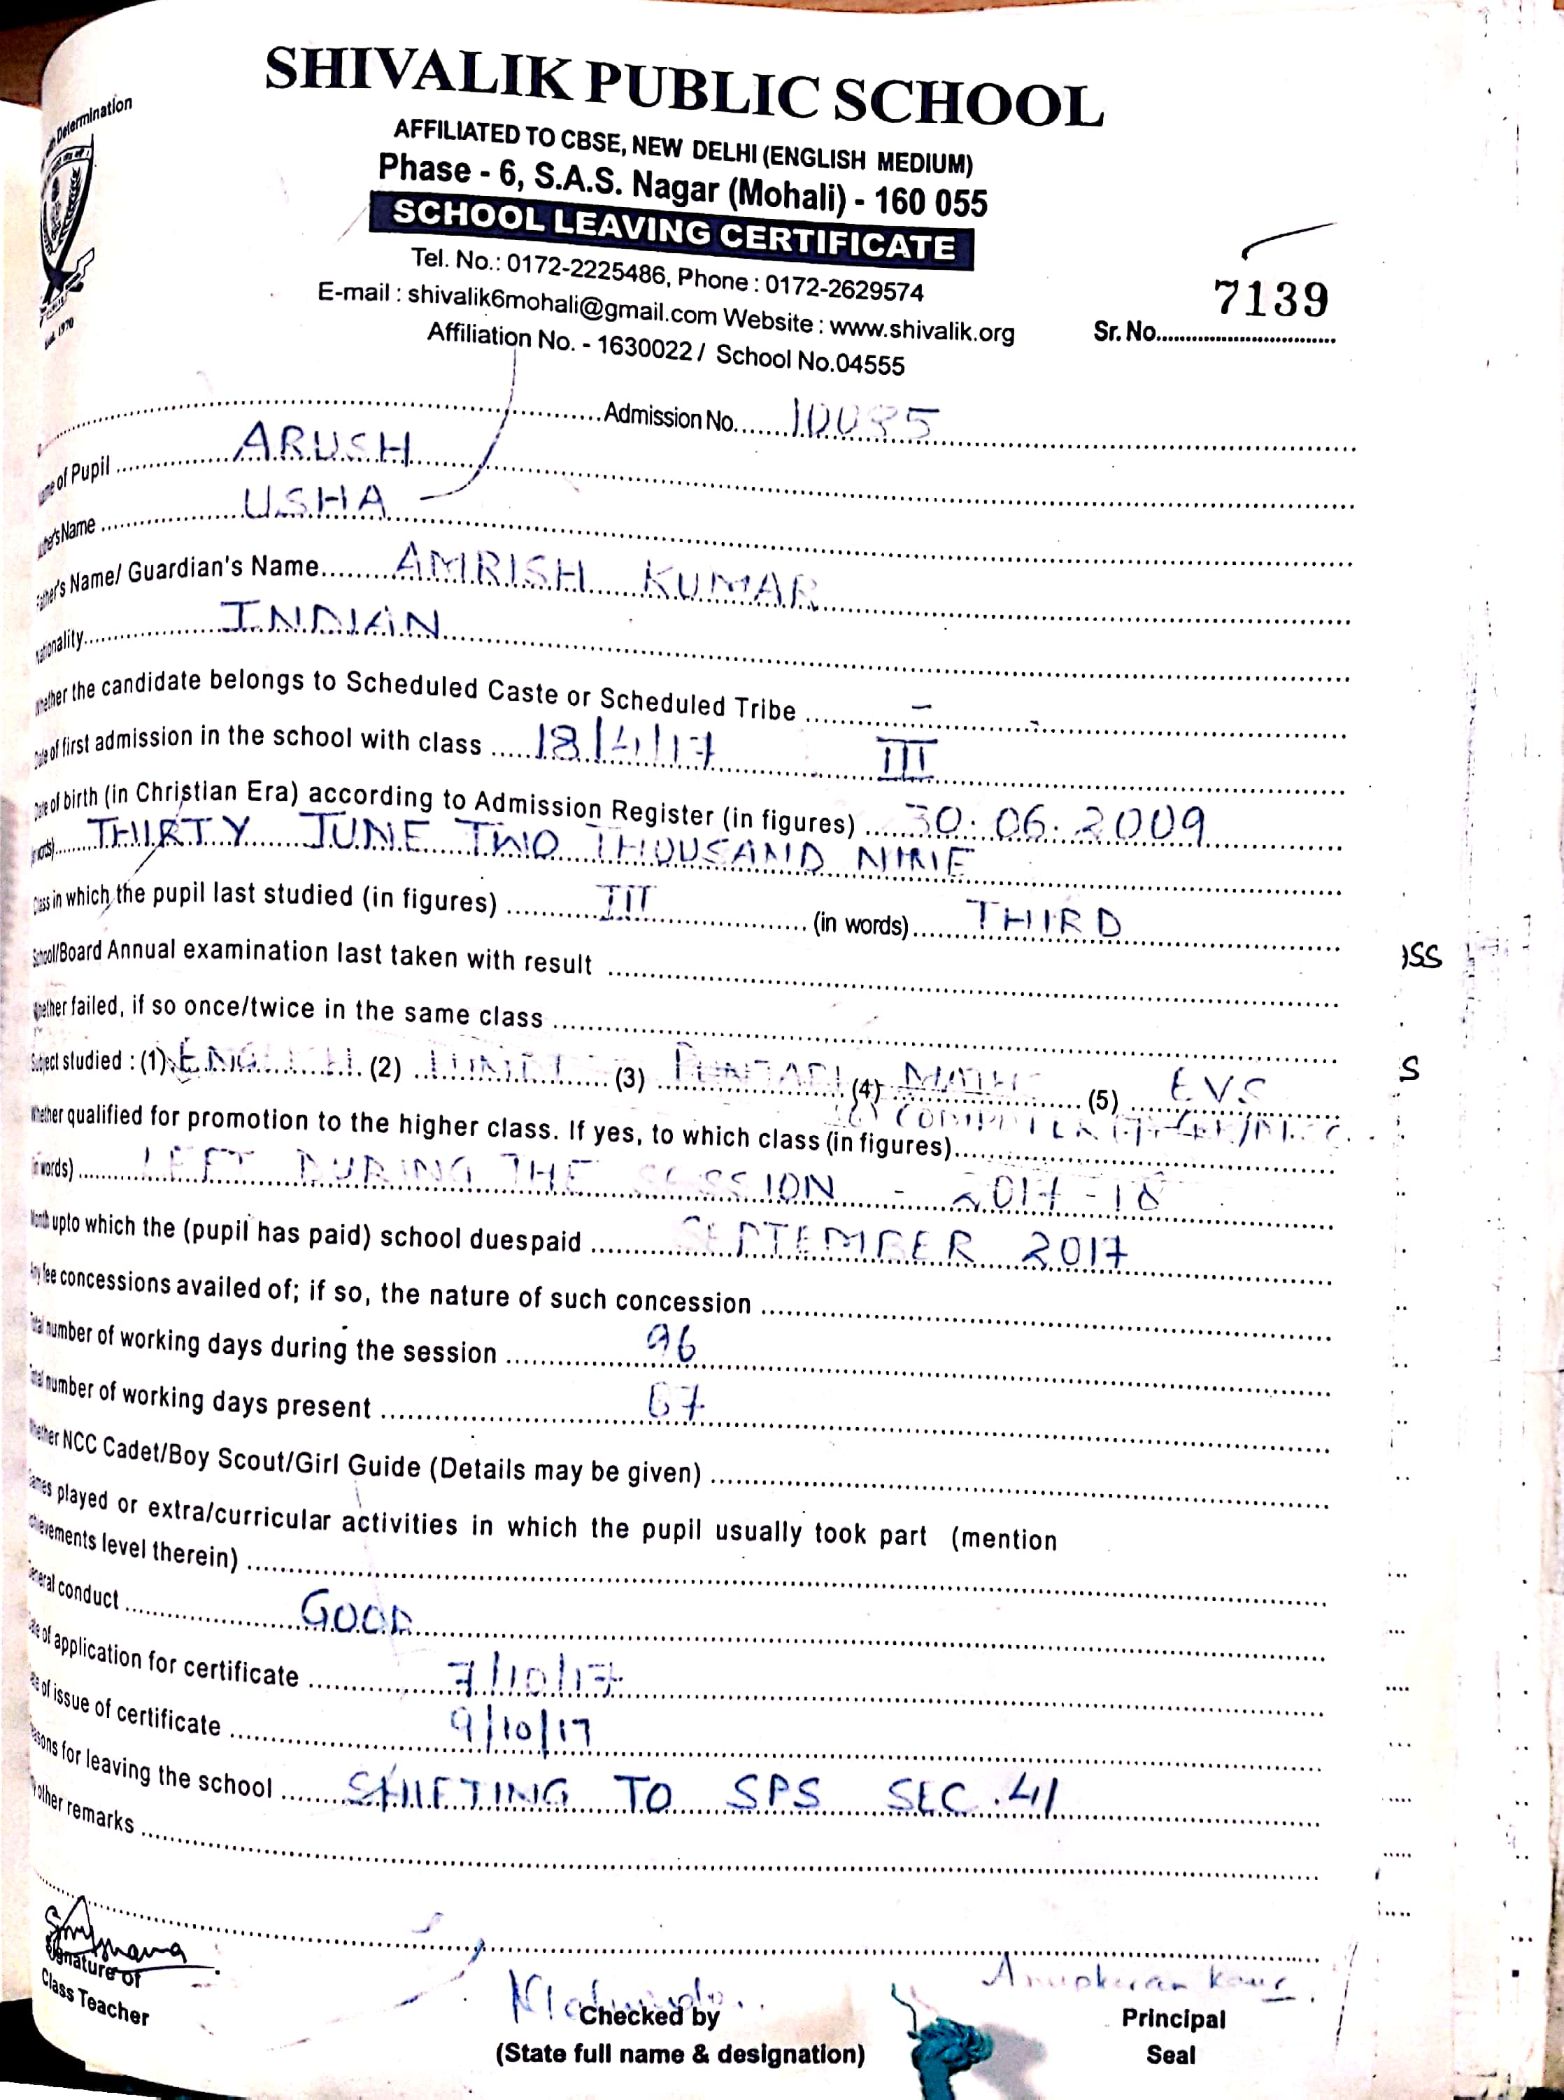 SHIVALIK PUBLIC SCHOOL
AFFILIATED TO CBSE, NEW DELHI (ENGLISH MEDIUM)
Phase - 6, S.A.S. Nagar (Mohali) - 160 055
SCHOOL LEAVING CERTIFICATE
Tel. No.: 0172-2225486, Phone : 0172-2629574
E-mail : shivalik6mohali@gmail.com Website : www.shivalik.org
Affiliation No. - 1630022 / School No.04555
Determination
Estd. 1970
7139
Sr. No.
Admission No. 10035
of Pupil ARUSH
Name USHA
Name/ Guardian's Name AMRISH KUMAR
INDIAN
the candidate belongs to Scheduled Caste or Scheduled Tribe - -
of first admission in the school with class 18/4/17 III
of birth (in Christian Era) according to Admission Register (in figures) 30.06.2009
THIRTY JUNE TWO THOUSAND NINE
in which the pupil last studied (in figures) III (in words) THIRD
School/Board Annual examination last taken with result
failed, if so once/twice in the same class
studied : (1) ENGLISH (2) (3) PUNJABI (4) MATHS (5) EVS
(6) COMPUTER
qualified for promotion to the higher class. If yes, to which class (in figures)
words) LEFT DURING THE SESSION - 2017-18
upto which the (pupil has paid) school duespaid SEPTEMBER 2017
fee concessions availed of; if so, the nature of such concession
number of working days during the session 96
number of working days present 67
NCC Cadet/Boy Scout/Girl Guide (Details may be given)
played or extra/curricular activities in which the pupil usually took part (mention
level therein)
conduct GOOD
of application for certificate 7/10/17
of issue of certificate 9/10/17
for leaving the school SHIFTING TO SPS SEC.41
other remarks
Signature of
Class Teacher
Checked by
(State full name & designation)
Anupkiran Kaur
Principal
Seal